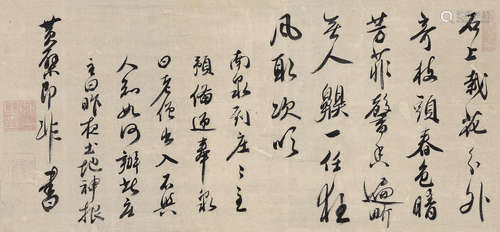 石上栽花分外
奇枝頭春色暗
芳菲馨香遍界
無人嗅一任狂
風取次吹
南泉到庄々主
預備迎奉泉
曰老僧出入不與
人知如何辦此庄
主曰昨夜土地神報
黄檗即非書